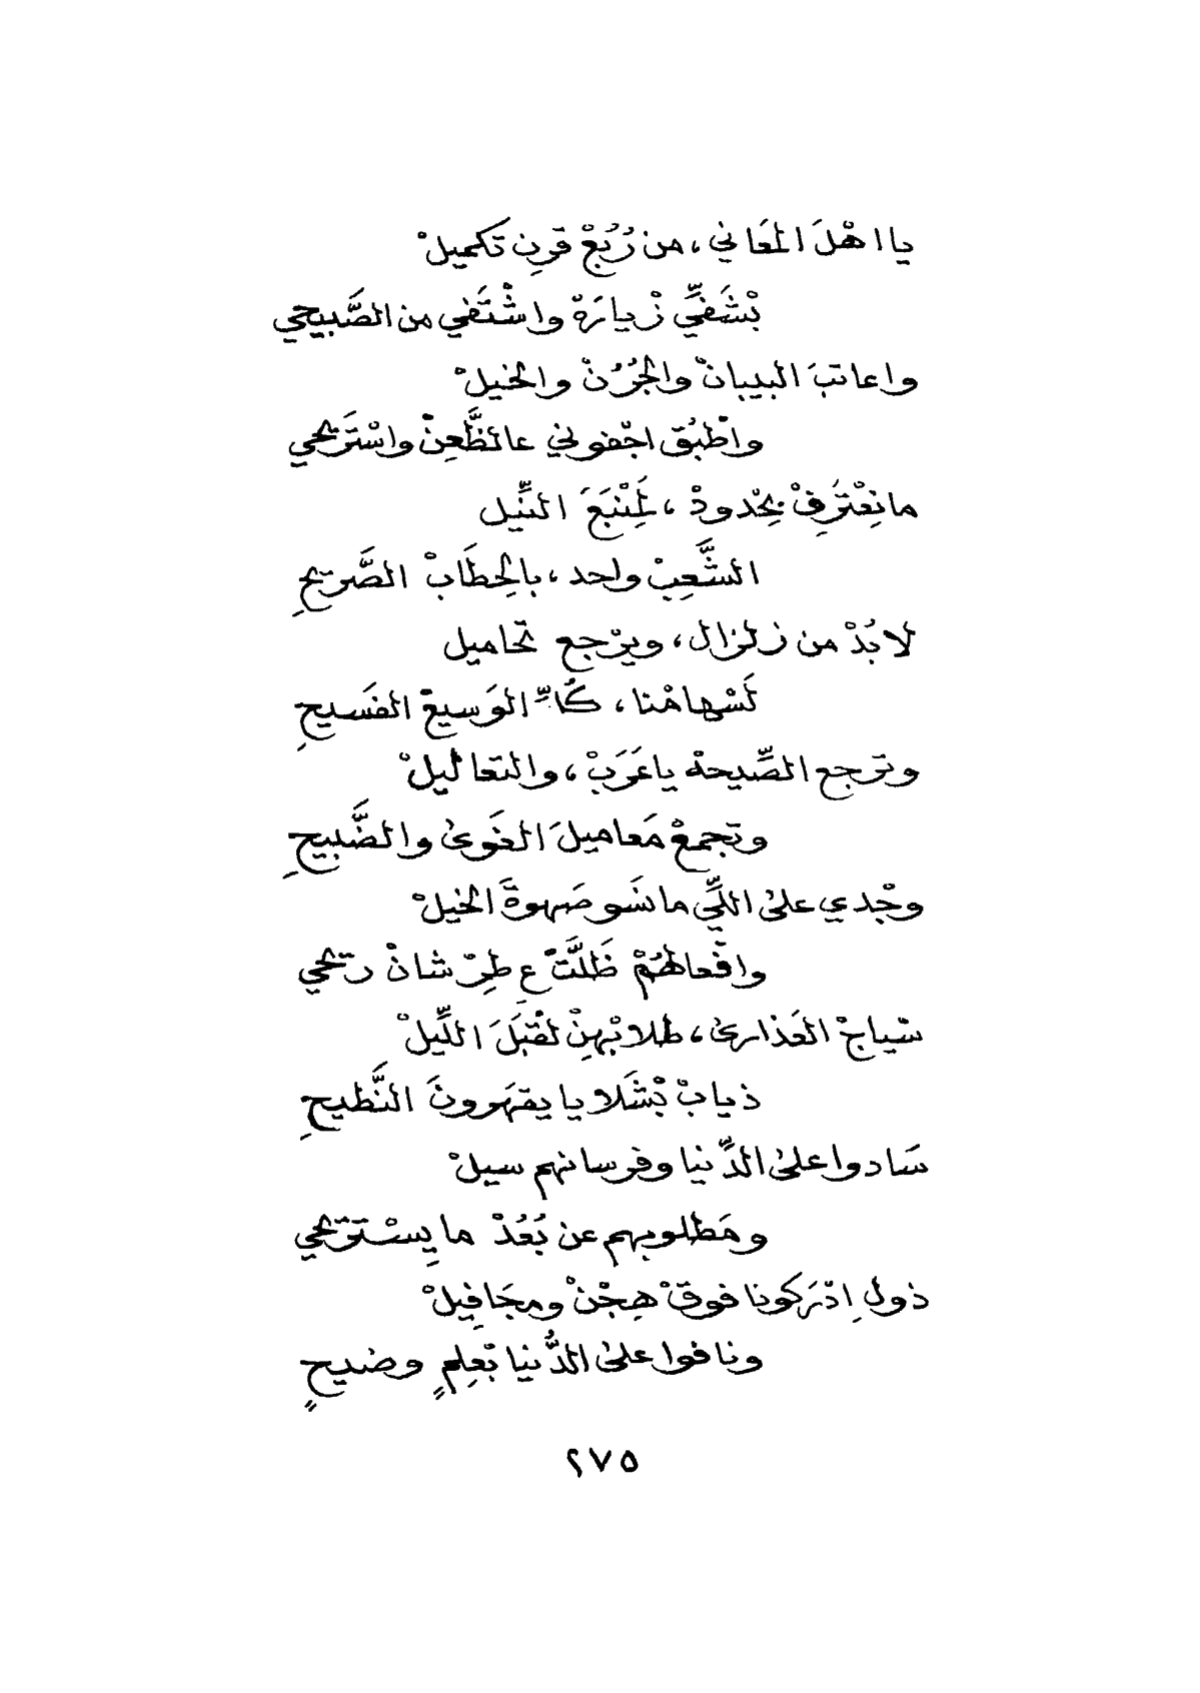 يا اهْلَ المعَاني، من رُبُعْ قرنِ تكميلْ
بْشَفيِّ زْيارَةْ واشْتَفي من الصَّبيحي
واعاتبَ البيبانْ والجُرُنْ والخيلْ
واطْبُق اجْفوني عالظَّعِنْ واسْتَريحي
ما نِعْتَرِفْ بحْدودْ، لمَنْبَعَ النِّيل
الشَّعِبْ واحد، بالخِطَابْ الصَّريحِ
لا بُدْ من زلزال، ويرْجع تحاميل
لَسْهامْنا، كُلِّ الوَسيعْ الفَسيحِ
وترجع الصِّيحةْ ياعَرَبْ، والتعاليلْ
وتجمعْ مَعاميلَ الغَوىٰ والضَّبيحِ
وجْدي علىٰ اللِّي مانسَو صَهوةَ الخيلْ
وافْعالهُمْ ظَلَّتْ ع طِرْشانْ ريحي
سْياجْ العَذارىٰ، طلابْهِنْ لقْبَلَ اللِّيلْ
ذيابْ بْشَلايا يقهَرونَ النَّطيحِ
سَادوا علىٰ الدِّنيا وفرسانهم سيلْ
ومَطلوبهم عن بُعُدْ ما يِستْريحي
ذولِ ادْرَكونا فوقْ هِجْنْ ومجَافِيلْ
ونافوا علىٰ الدُّنيا بْعِلمٍ وضيحٍ
٢٧٥